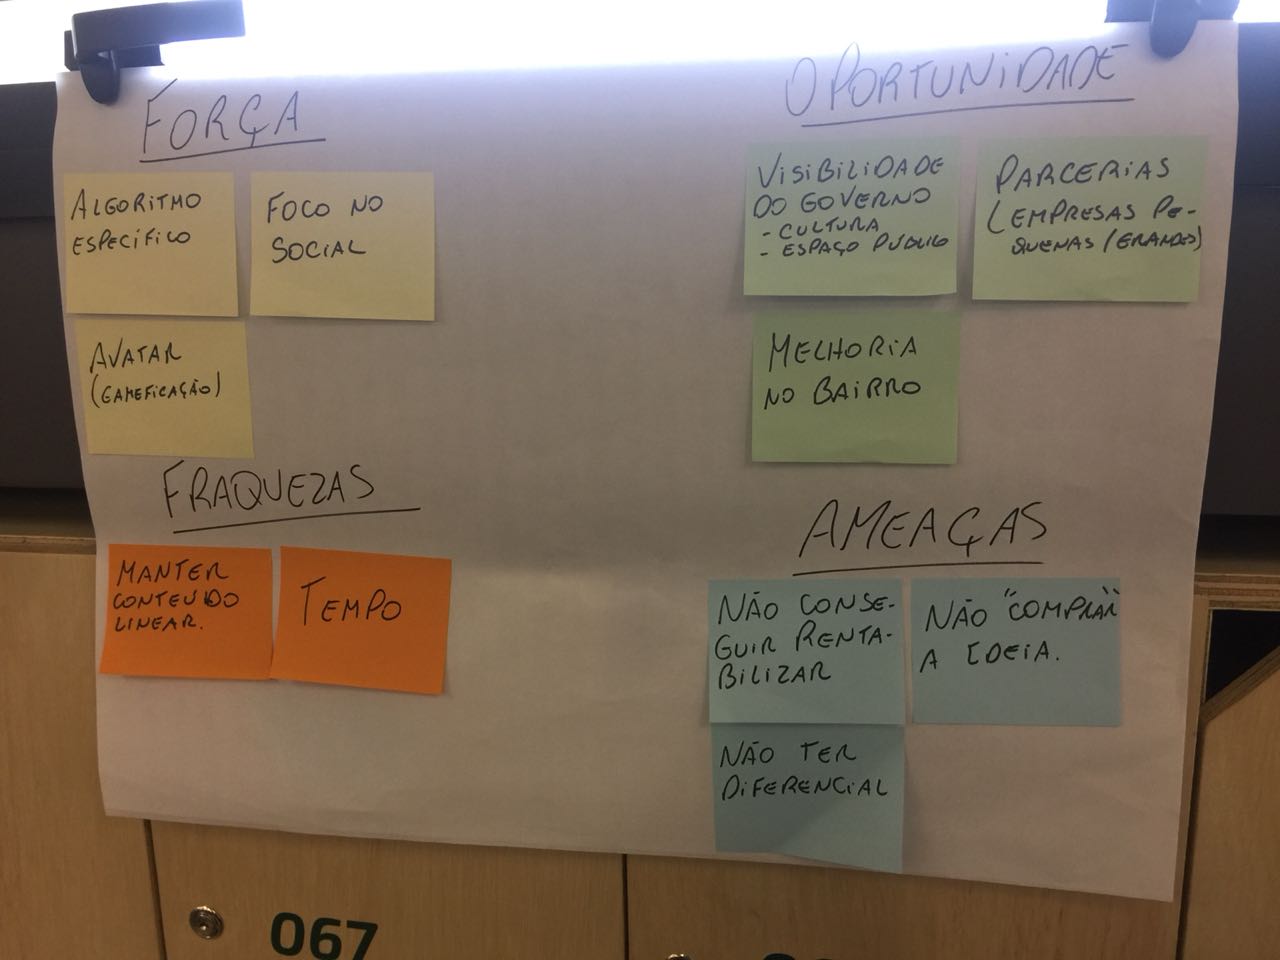 FORÇA
ALGORITMO
ESPECÍFICO
FOCO NO
SOCIAL
AVATAR
(GAMEFICAÇÃO)
OPORTUNIDADE
VISIBILIDADE
DO GOVERNO
- CULTURA
- ESPAÇO PUBLICO
PARCERIAS
(EMPRESAS PE-
QUENAS/GRANDES)
MELHORIA
NO BAIRRO
FRAQUEZAS
MANTER
CONTEUDO
LINEAR.
TEMPO
AMEAÇAS
NÃO CONSE-
GUIR RENTA-
BILIZAR
NÃO "COMPRAR"
A IDEIA.
NÃO TER
DIFERENCIAL
067